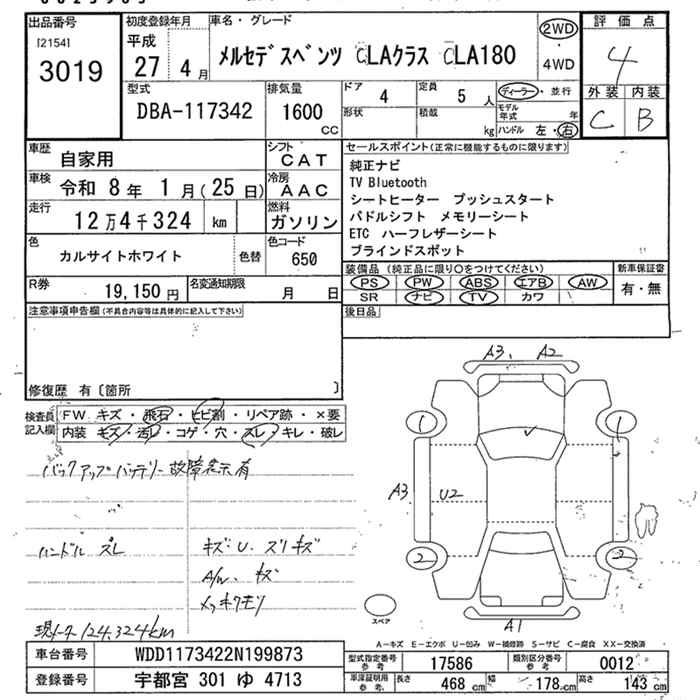 出品番号
[2154]
3019
初度登録年月
平成
27 4月
車名・グレード
メルセデスベンツ CLAクラス CLA180
2WD
4WD
評価点
4
外装 内装
C B
型式
DBA-117342
排気量
1600
CC
ドア 4
定員 5 人
形状
積載 kg
ディーラー・並行
モデル年式 年
ハンドル 左・右
車歴 自家用
シフト CAT
車検 令和 8年 1月(25日)
冷房 AAC
走行 12万4千324 km
燃料 ガソリン
色 カルサイトホワイト 色替
色コード 650
R券 19,150円
名変通知期限 月 日
セールスポイント(正常に機能するものに限ります)
純正ナビ
TV Bluetooth
シートヒーター プッシュスタート
パドルシフト メモリーシート
ETC ハーフレザーシート
ブラインドスポット
装備品(純正品に限り○をつけてください)
PS PW ABS エアB AW
SR ナビ TV カワ
新車保証書
有・無
後日品
注意事項申告欄(不具合内容等は具体的に記入して下さい)
修復歴 有〔箇所 〕
検査員記入欄
FW キズ・飛石・ヒビ割・リペア跡・×要
内装 キズ・汚レ・コゲ・穴・スレ・キレ・破レ
バックアップバッテリー故障表示有
ハンドル スレ
キズ・U・スリキズ
A/W キズ
メッキクモリ
現メータ124,324km
A3、 A2
1 1
A3 U2
2 2
A1
スペア
A-キズ E-エクボ U-凹み W-補修跡 S-サビ C-腐食 XX-交換済
車台番号 WDD1173422N199873
登録番号 宇都宮 301 ゆ 4713
型式指定番号 参考 17586
類別区分番号 参考 0012
車庫証明用 参考 長さ 468 cm 幅 178 cm 高さ 143 cm